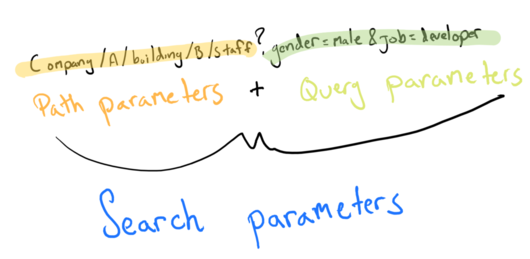 Company/A/building/B/staff? gender=male & job=developer
Path parameters + Query parameters
Search parameters